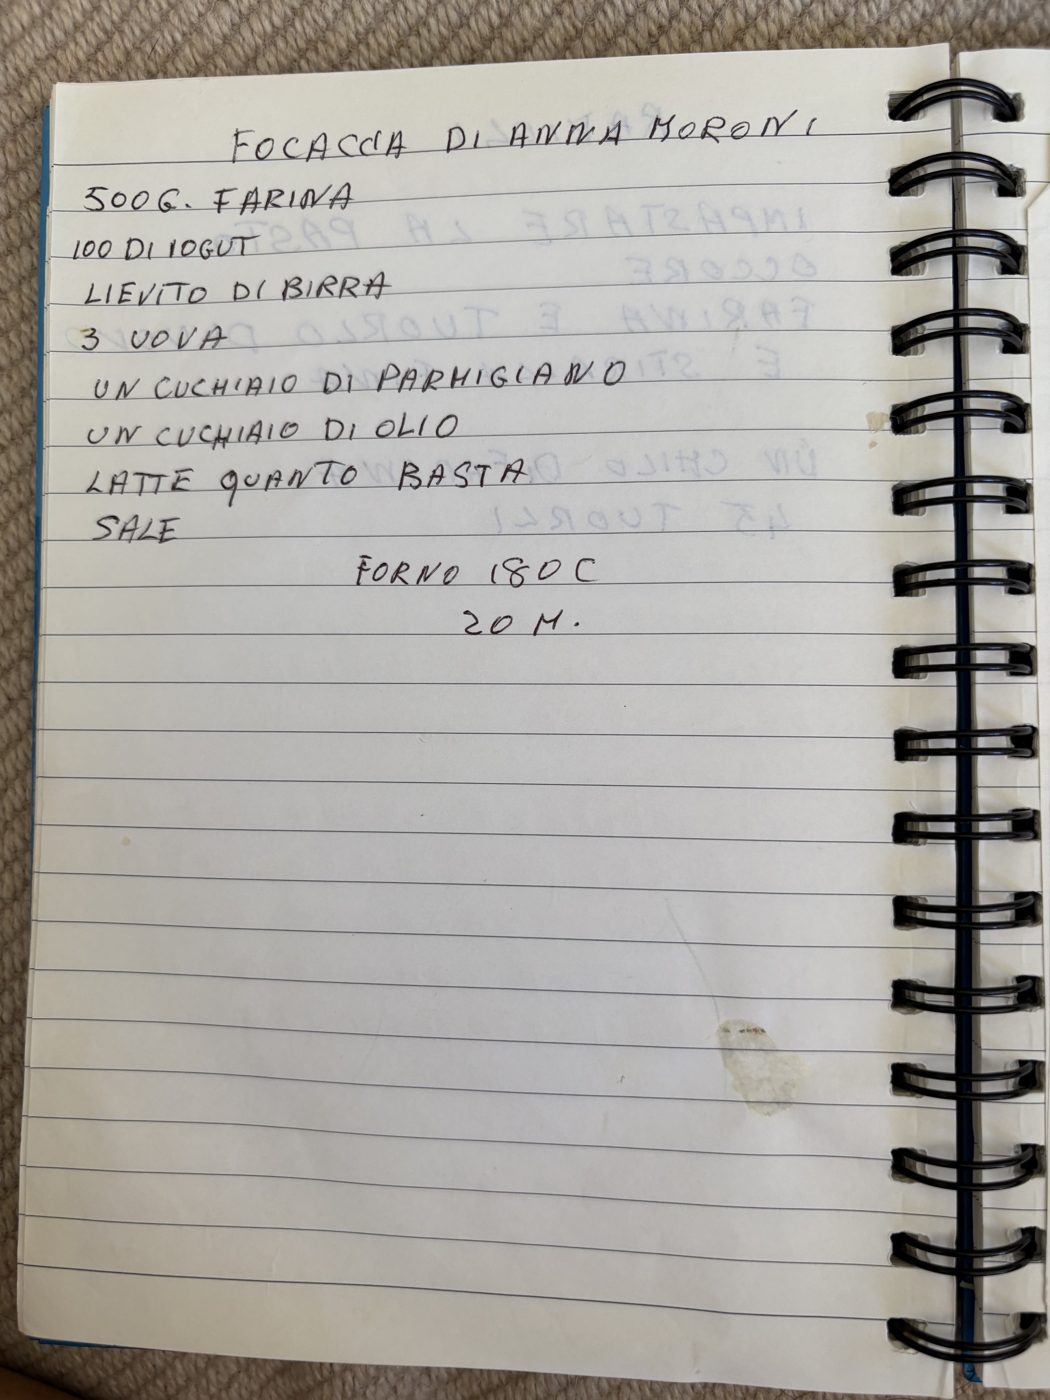 FOCACCIA DI ANNA MORONI
500G. FARINA
100 DI IOGUT
LIEVITO DI BIRRA
3 UOVA
UN CUCHIAIO DI PARMIGIANO
UN CUCHIAIO DI OLIO
LATTE QUANTO BASTA
SALE
FORNO 180C
20 M.